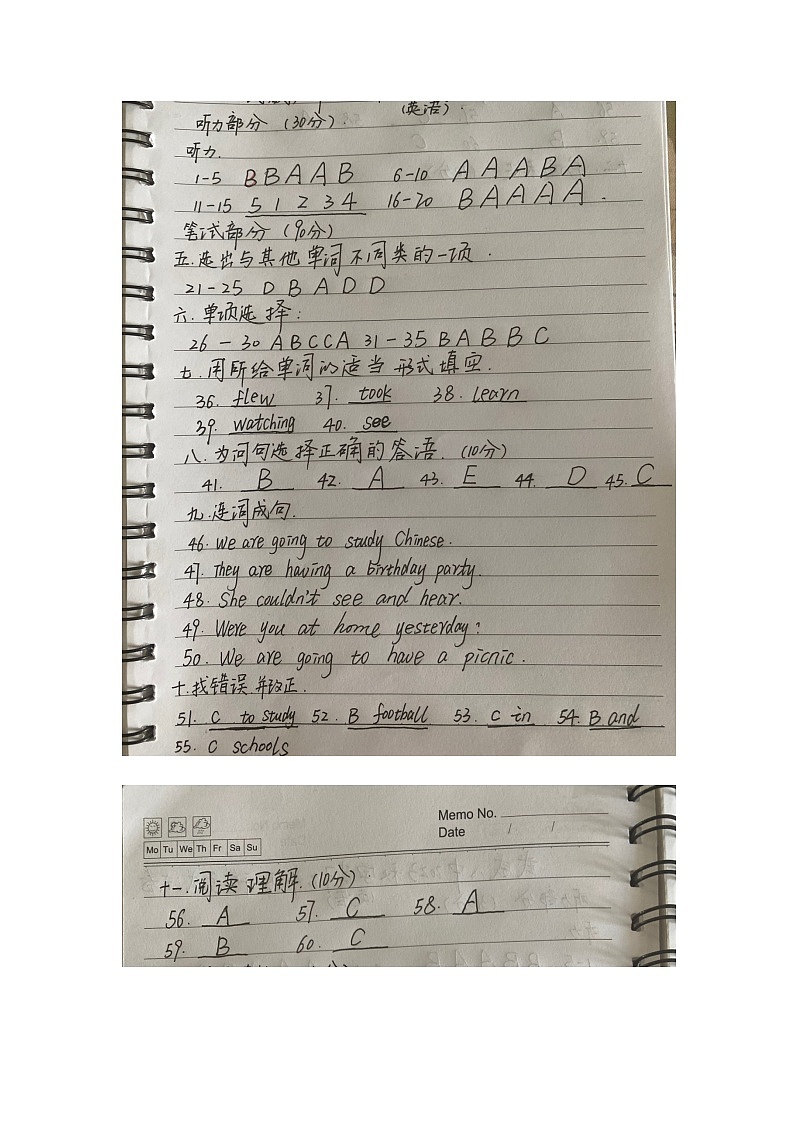 (英语).
听力部分 (30分).
听力.
1-5 B B A A B 6-10 A A A B A
11-15 5 1 2 3 4 16-20 B A A A A .
笔试部分 (90分)
五.选出与其他单词不同类的一项.
21-25 D B A D D
六.单项选择:
26 - 30 A B C C A 31-35 B A B B C
七.用所给单词的适当形式填空.
36. flew 37. took 38. learn
39. watching 40. see
八.为问句选择正确的答语.(10分)
41. B 42. A 43. E 44. D 45. C
九.连词成句.
46. we are going to study Chinese.
47. They are having a birthday party.
48. She couldn't see and hear.
49. Were you at home yesterday?
50. We are going to have a picnic.
十.找错误,并改正.
51. C to study 52. B football 53. C in 54. B and
55. C schools
Memo No.
Date / /
Mo Tu We Th Fr Sa Su
十一.阅读理解.(10分)
56. A 57. C 58. A
59. B 60. C